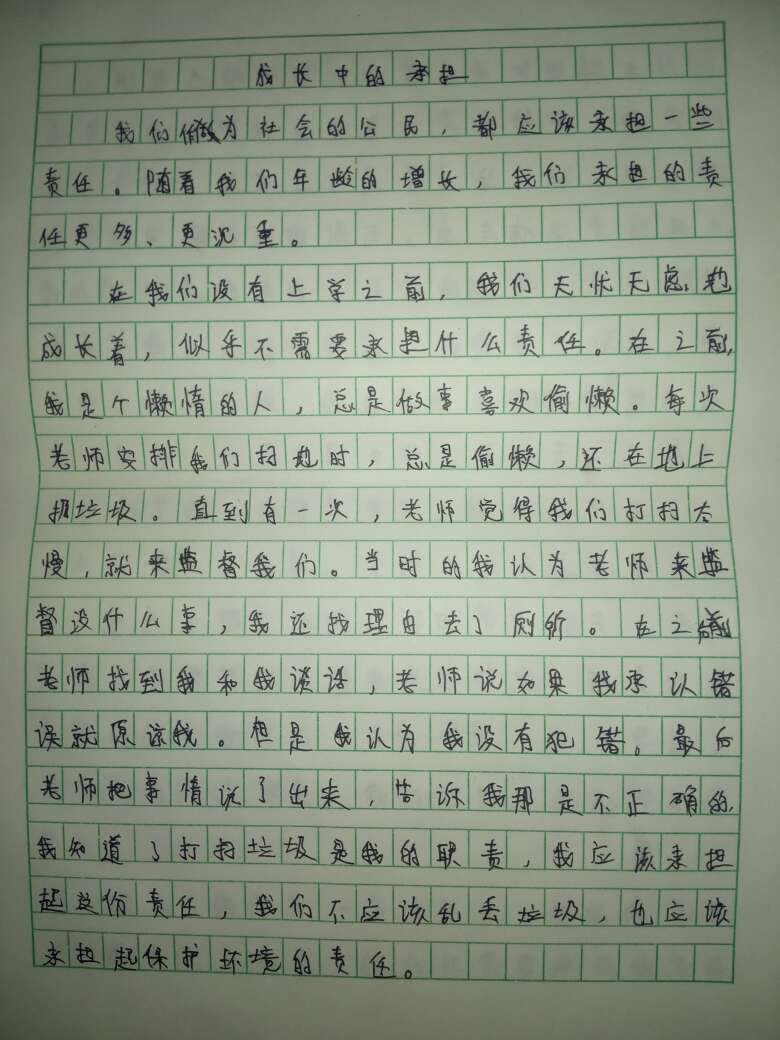 成长中的承担
我们做为社会的公民，都应该承担一些
责任。随着我们年龄的增长，我们承担的责
任更多、更沉重。
在我们没有上学之前，我们无忧无虑地
成长着，似乎不需要承担什么责任。在之前，
我是个懒惰的人，总是做事喜欢偷懒。每次
老师安排我们扫地时，总是偷懒，还在地上
扔垃圾。直到有一次，老师觉得我们打扫太
慢，就来监督我们。当时的我认为老师来监
督没什么事，我还找理由去了厕所。在之前
老师找到我和我谈话，老师说如果我承认错
误就原谅我。但是我认为我没有犯错。最后
老师把事情说了出来，告诉我那是不正确的，
我知道了打扫垃圾是我的职责，我应该承担
起这份责任，我们不应该乱丢垃圾，也应该
承担起保护环境的责任。